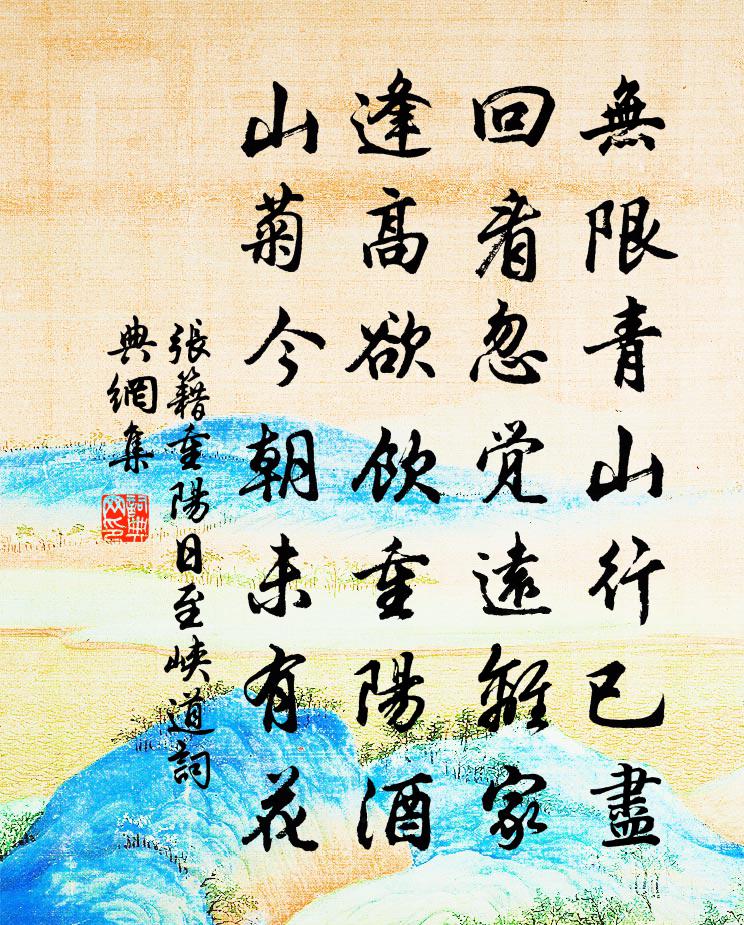 無限青山行已盡
回看忽覺遠離家
逢高欲飲重陽酒
山菊今朝未有花
張籍重陽日至峽道詞
典網集
詞典網印